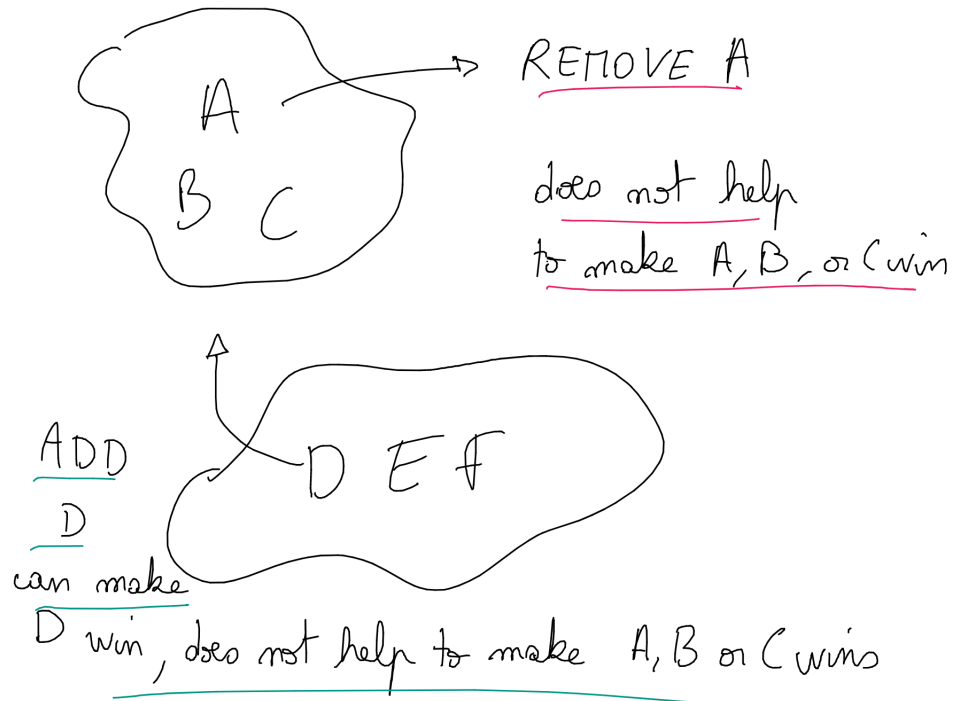 A
REMOVE A
B C
does not help
to make A, B, or C win
ADD
D E F
D
can make
D win, does not help to make A, B or C wins